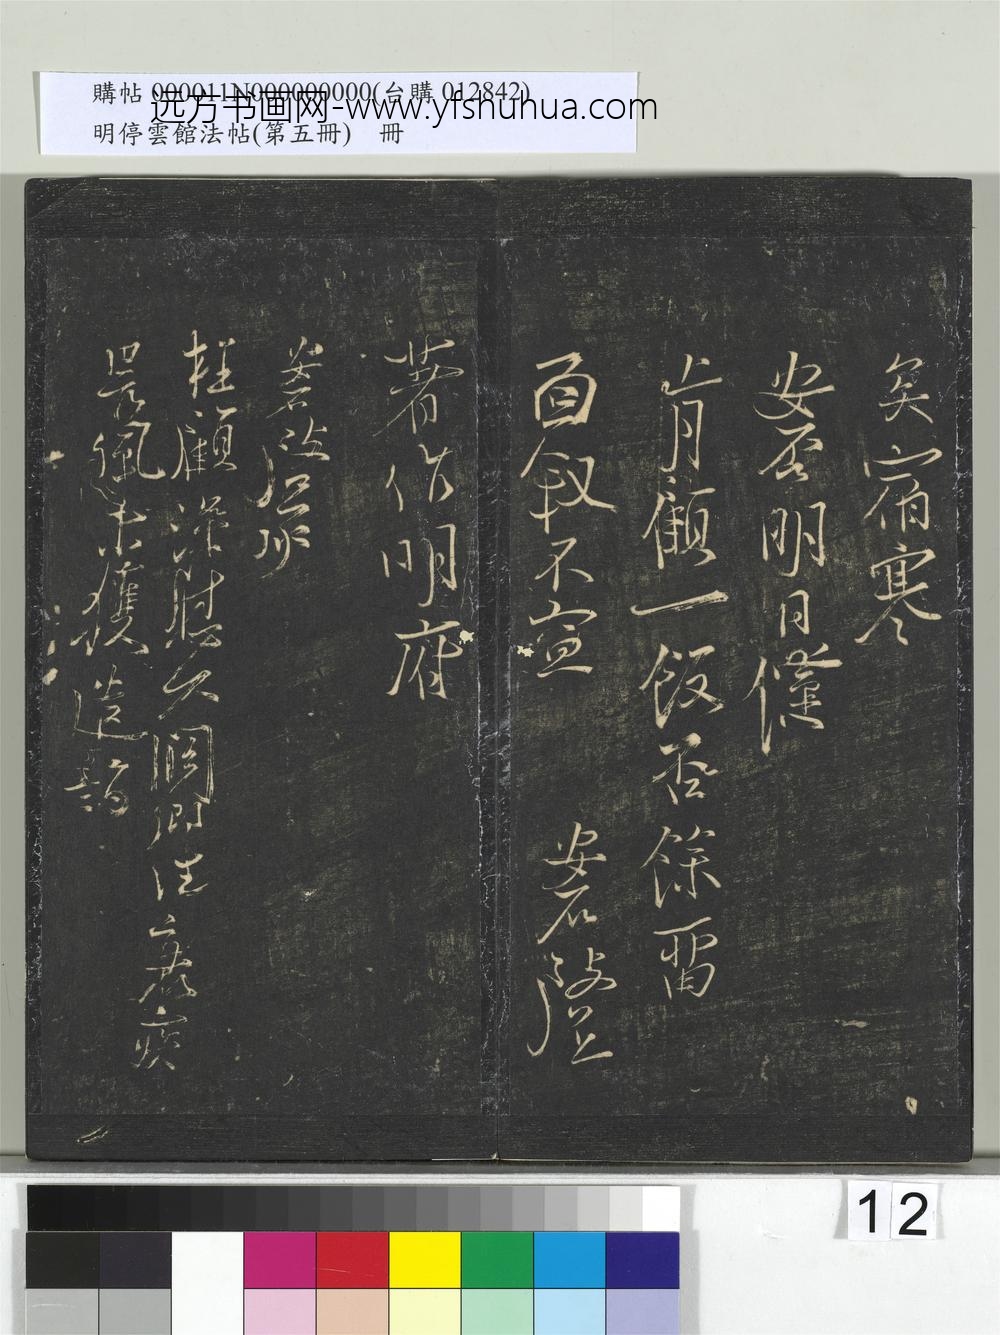 購帖 000011N000000000(台購 012842)
远方书画网-www.yfshuhua.com
明停雲館法帖(第五冊) 冊
矣宿寒
安否明日僅
肯顧一飯否餘留
面敘不宣 安石
著作明府
安石啓
枉顧深慰久闊卿往衰疾
佩未獲造詣
12